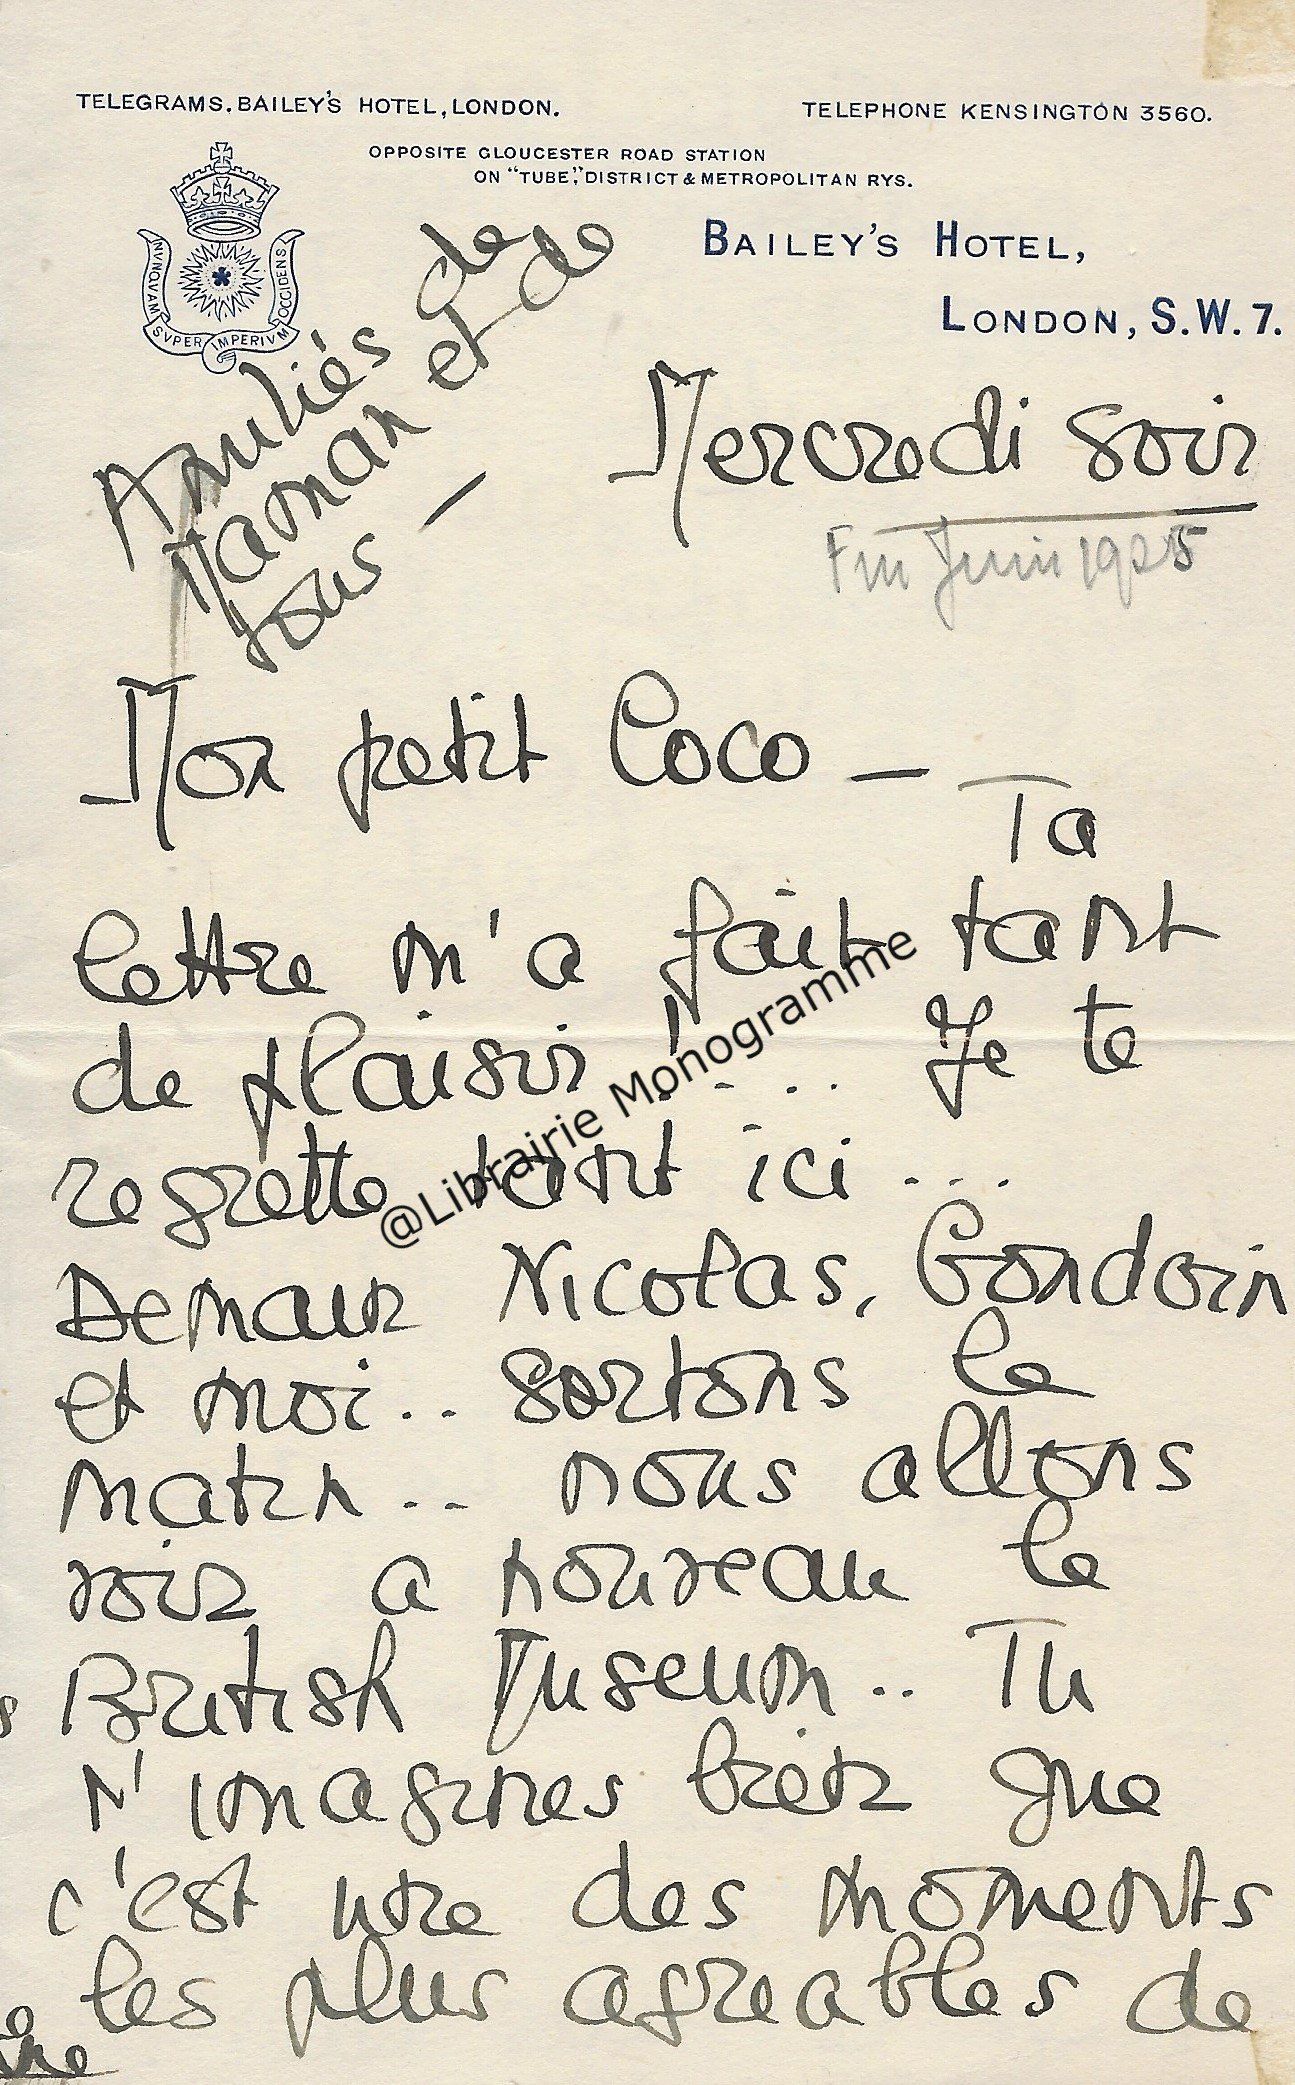 TELEGRAMS. BAILEY'S HOTEL, LONDON.
TELEPHONE KENSINGTON 3560.
OPPOSITE GLOUCESTER ROAD STATION
ON "TUBE", DISTRICT & METROPOLITAN RYS.
NVNQVAM SVPER IMPERIVM OCCIDENS
BAILEY'S HOTEL,
LONDON, S.W.7.
Amitiés de
Maman et de
tous —
Mercredi soir
Fin Juin 1925
Mon petit Coco — Ta
lettre m'a fait tant
de plaisir !... Je te
regrette tant ici...
Demain Nicolas, Gondoin
et moi.. sortons le
matin.. nous allons
voir a nouveau le
British Museum.. Tu
n'imagines bien que
c'est une des moments
les plus agreables de
@Librairie Monogramme